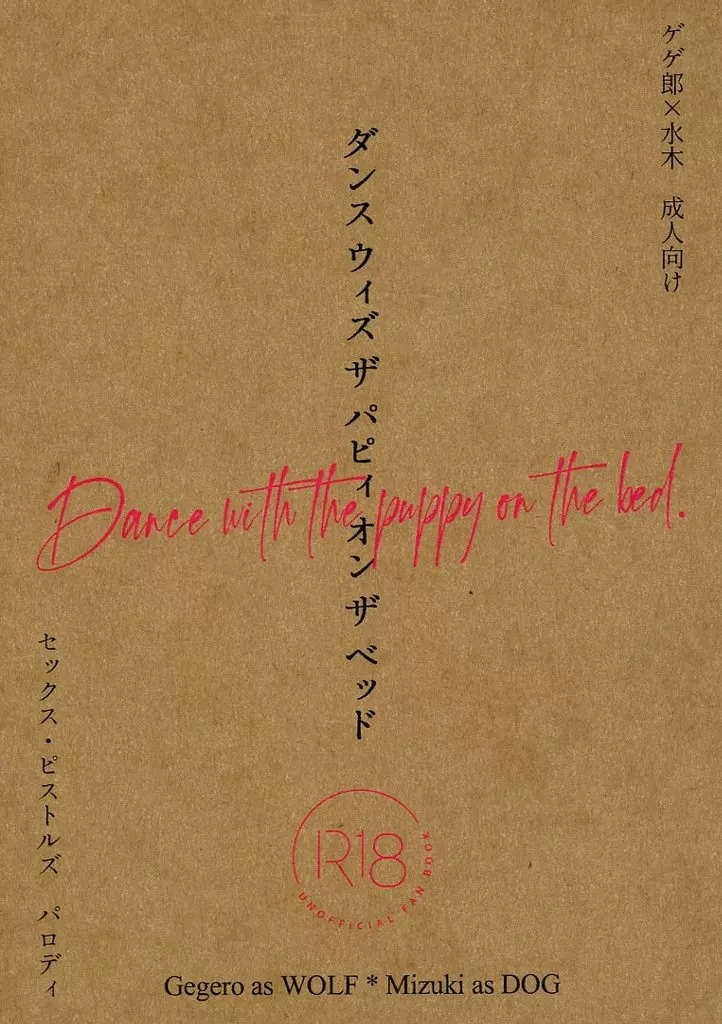 ゲゲ郎×水木 成人向け
ダンス ウィズ ザ パピィ オン ザ ベッド
Dance with the puppy on the bed.
セックス・ピストルズ パロディ
R18
UNOFFICIAL FAN BOOK
Gegero as WOLF * Mizuki as DOG